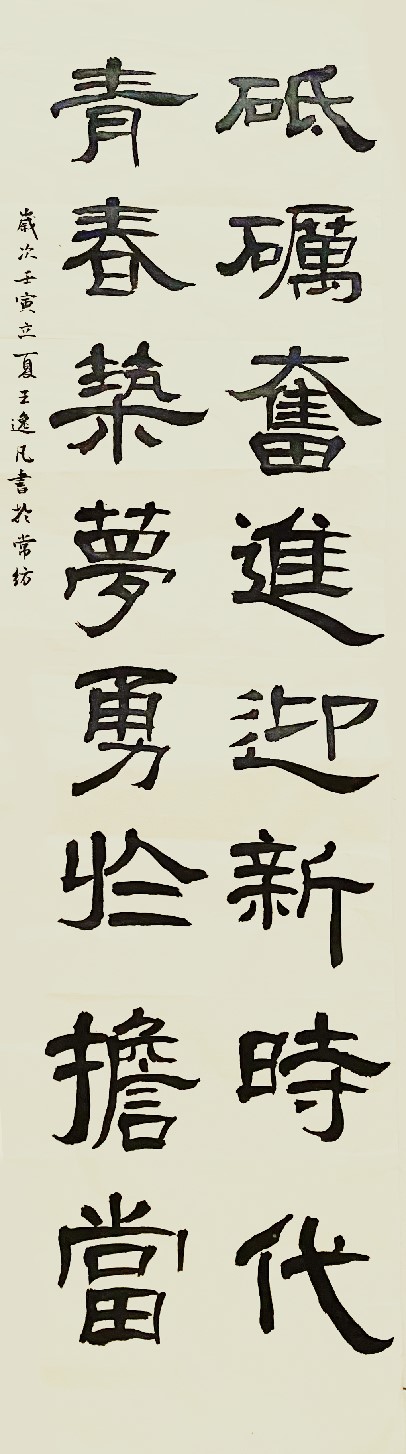 砥礪奮進迎新時代
青春築夢勇於擔當
歲次壬寅立夏王逸凡書於常紡